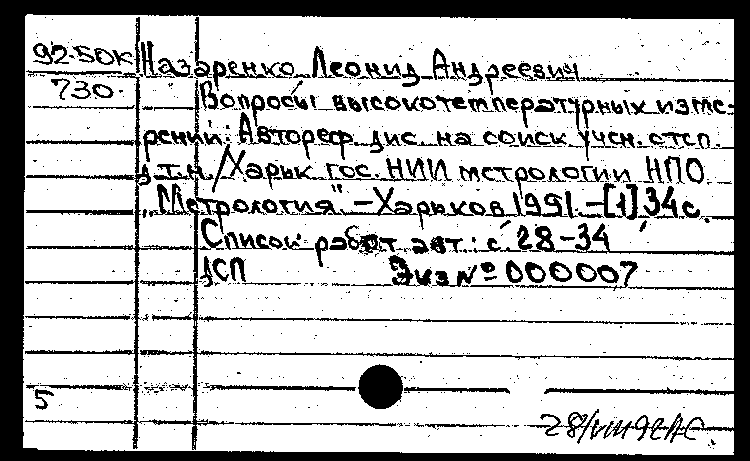 92-50К Назаренко Леонид Андреевич
730. Вопросы высокотемпературных изме-
рений: Автореф. дис. на соиск учен. степ.
д.т.н./Харьк гос. НИИ метрологии НПО
"Метрология". – Харьков 1991. – [1] 34 с.
Список работ авт.: с. 28–34
ДСП Экз № 000007
5